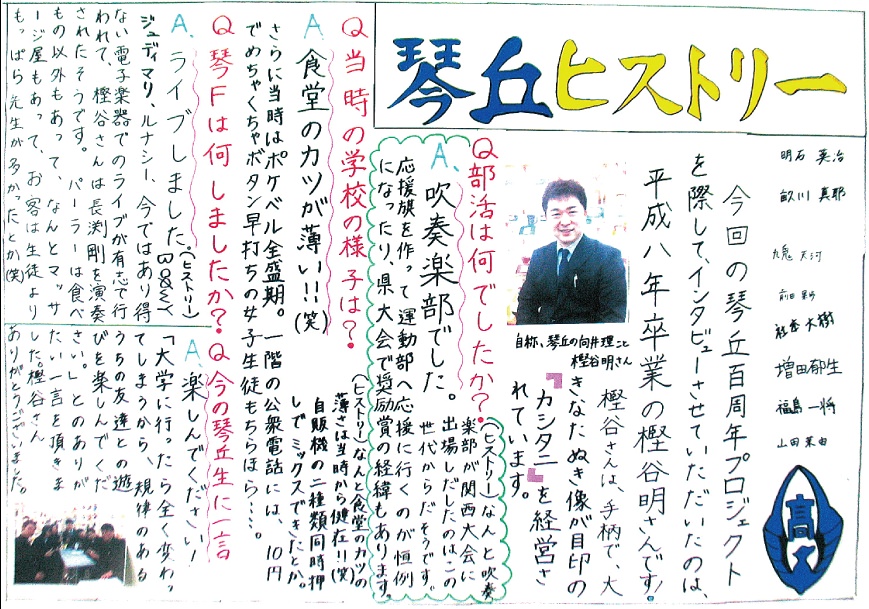 琴丘ヒストリー
明石 英治
畝川 真耶
九鬼 天河
前田
社 大樹
増田郁生
福島 一将
山田 茉由
今回の琴丘百周年プロジェクト
を際して、インタビューさせていただいたのは、
平成八年卒業の樫谷明さんです!
自称、琴丘の向井理こと
樫谷明さん
樫谷さんは、手柄で、大
きなたぬき像が目印の
『カシタニ』を経営さ
れています。
Q部活は何でしたか?
A、吹奏楽部でした。
(ヒストリー)なんと吹奏
楽部が関西大会に
出場しだしたのはこの
世代からだそうです。
応援旗を作って運動部へ応援に行くのが恒例
になったり、県大会で奨励賞の経緯もあります。
Q当時の学校の様子は?
A 食堂のカツが薄い!!(笑)
(ヒストリー)なんと食堂のカツの
薄さは当時から健在!!(笑)
自販機の二種類同時押
しでミックスできたとか。
さらに当時はポケベル全盛期。一階の公衆電話には、10円
でめちゃくちゃボタン早打ちの女子生徒もちらほら…。
Q琴Fは何しましたか?
A、ライブしました。
(ヒストリー)
BOØWY
ジュディマリ、ルナシー、今ではあり得
ない電子楽器でのライブが有志で行
われて、樫谷さんは長渕剛を演奏
されたそうです。パーラーは食べ
もの以外もあって、なんとマッサ
ージ屋もあって、お客は生徒より
もっぱら先生が多かったとか(笑)
Q今の琴丘生に一言
A、楽しんでください!
「大学に行ったら全く変わっ
てしまうから、規律のある
うちの友達との遊
びを楽しんでくだ
さい。」とのありが
たい一言を頂きま
した。樫谷さん
ありがとうございました。
高